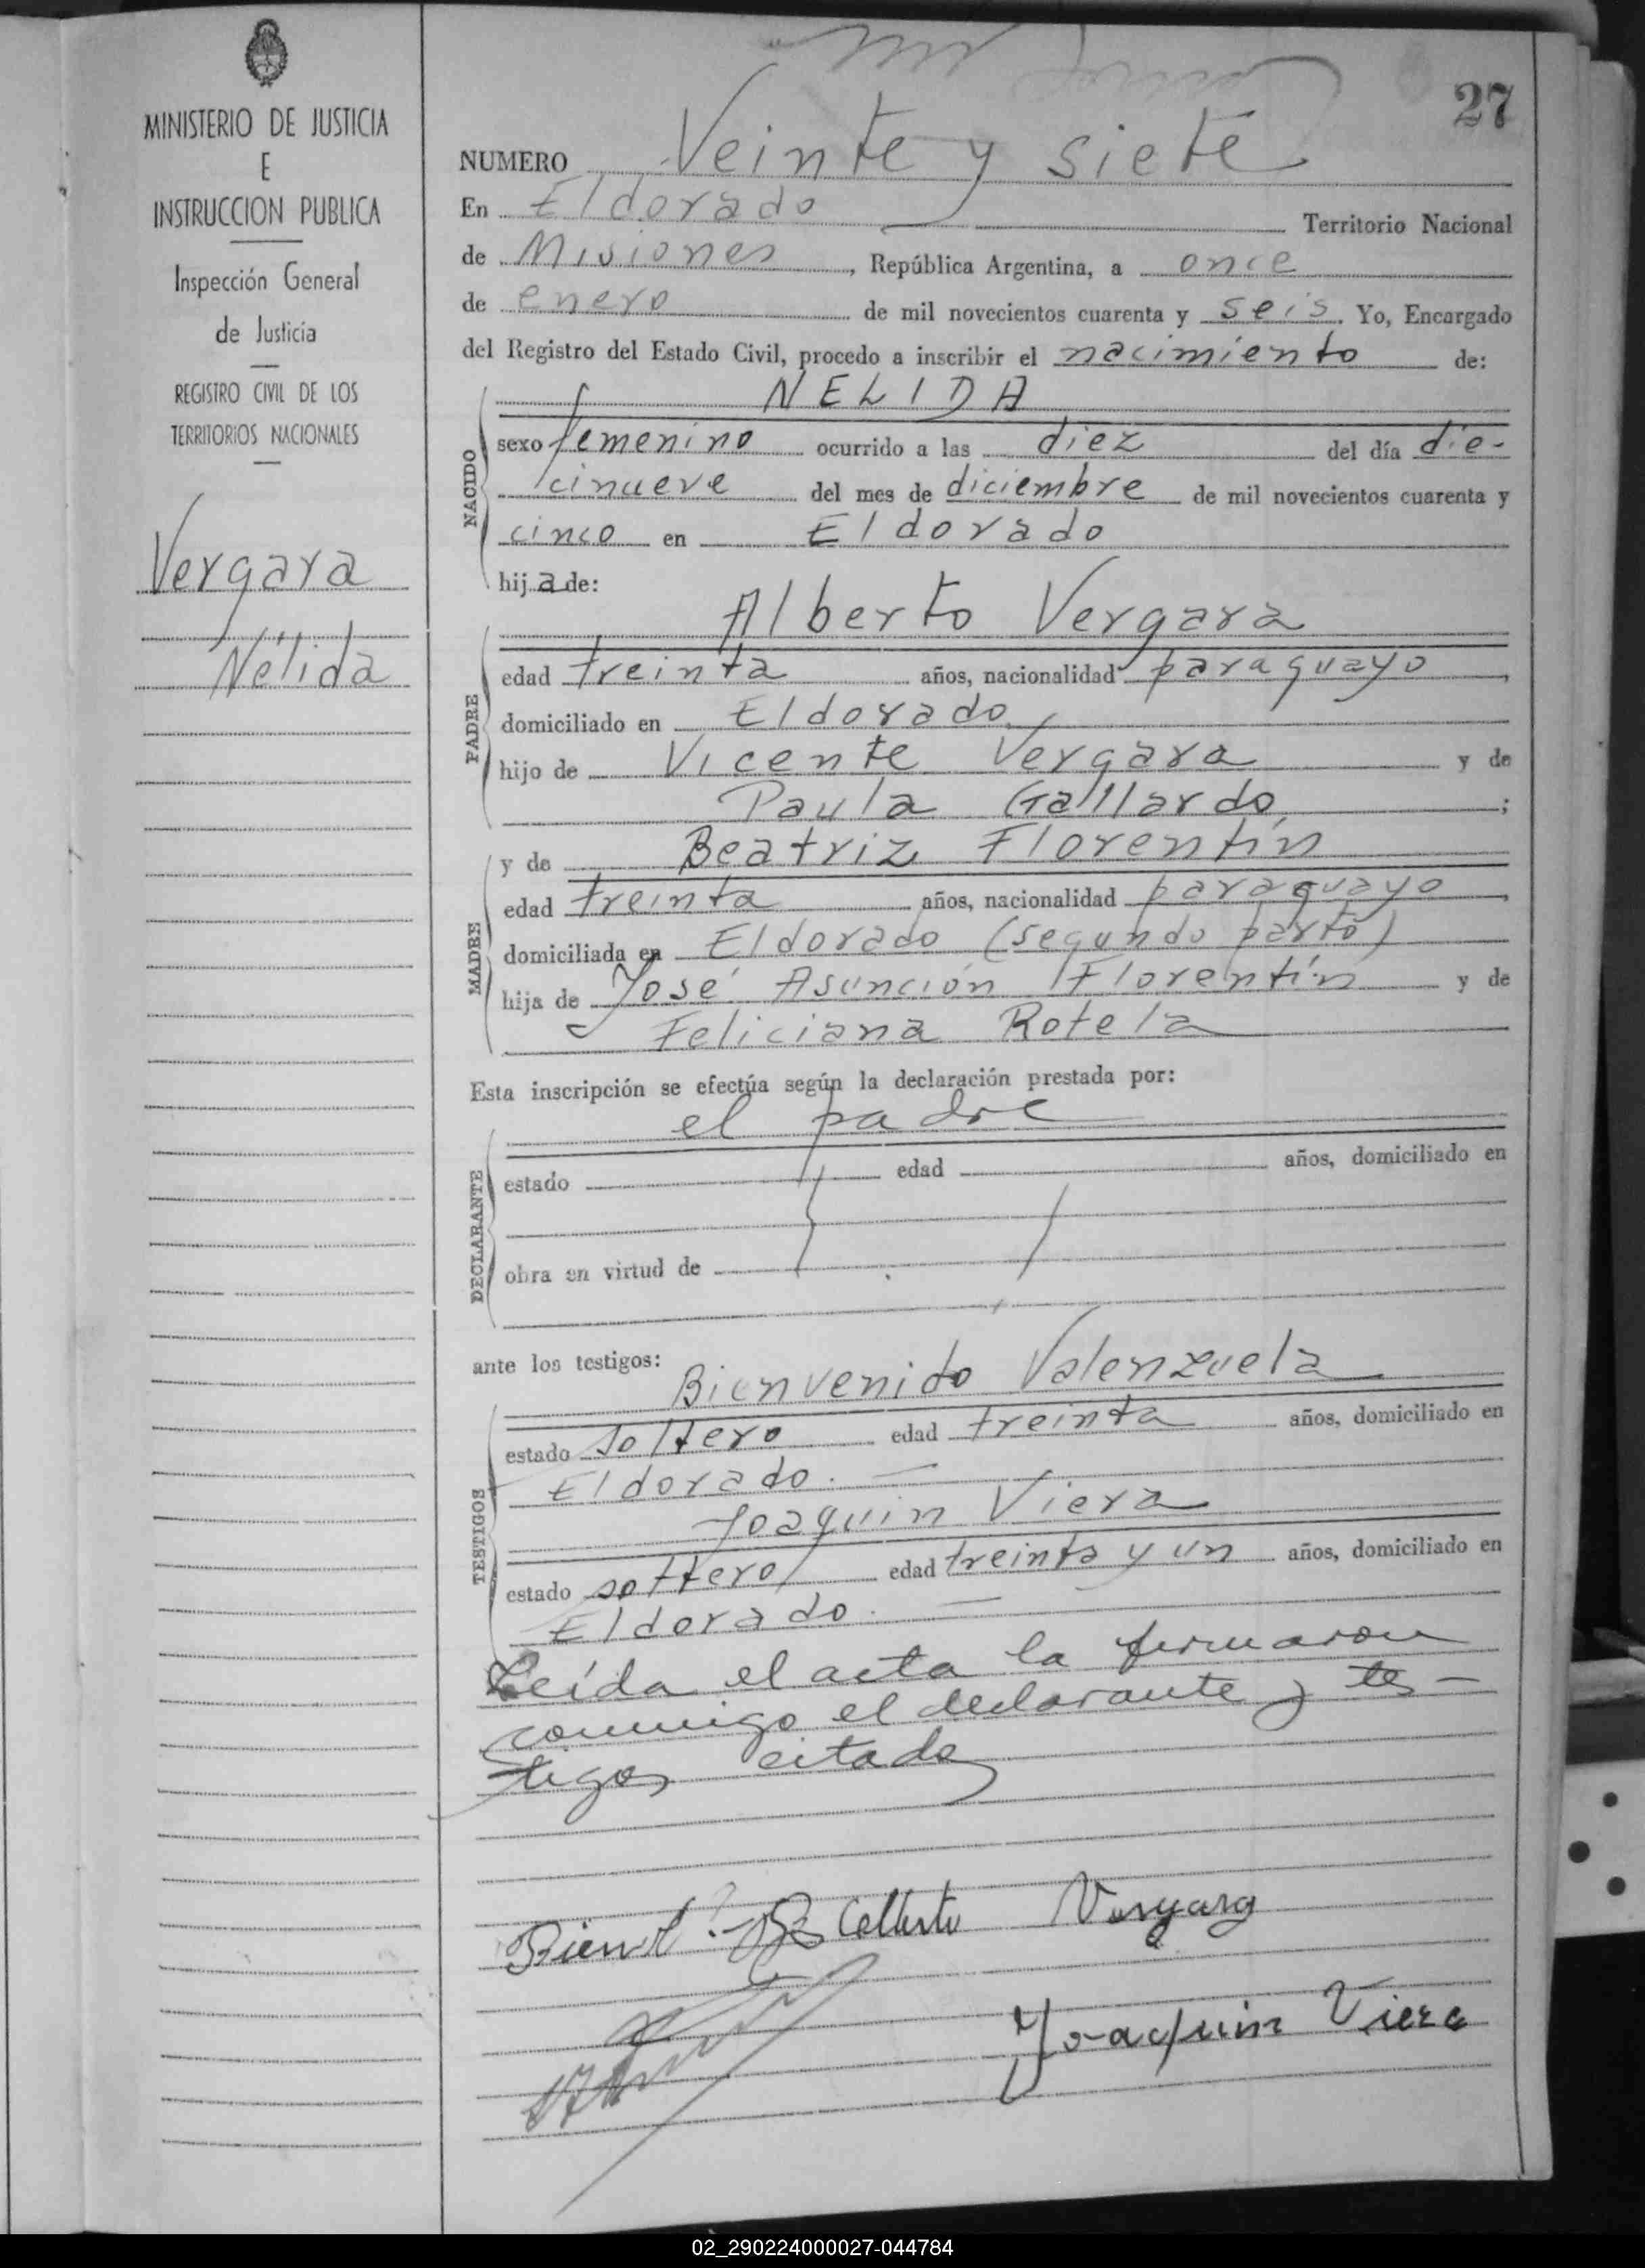 MINISTERIO DE JUSTICIA
E
INSTRUCCION PUBLICA
Inspección General
de Justicia
REGISTRO CIVIL DE LOS
TERRITORIOS NACIONALES
Vergara
Nélida
27
NUMERO Veinte y siete
En Eldorado Territorio Nacional
de Misiones, República Argentina, a once
de enero de mil novecientos cuarenta y seis. Yo, Encargado
del Registro del Estado Civil, procedo a inscribir el nacimiento de:
NACIDO
NELIDA
sexo femenino ocurrido a las diez del día die-
cinueve del mes de diciembre de mil novecientos cuarenta y
cinco en Eldorado
hija de:
PADRE
Alberto Vergara
edad treinta años, nacionalidad paraguayo,
domiciliado en Eldorado
hijo de Vicente Vergara y de
Paula Gallardo;
MADRE
y de Beatriz Florentín
edad treinta años, nacionalidad paraguayo,
domiciliada en Eldorado (segundo parto)
hija de José Asunción Florentín y de
Feliciana Rotela
Esta inscripción se efectúa según la declaración prestada por:
DECLARANTE
el padre
estado edad años, domiciliado en
obra en virtud de
ante los testigos:
TESTIGOS
Bienvenido Valenzuela
estado soltero edad treinta años, domiciliado en
Eldorado.
Joaquin Viera
estado soltero edad treinta y un años, domiciliado en
Eldorado.
Leída el acta la firmaron
conmigo el declarante y tes-
tigos citados
Vergara
Joaquin Viera
02_290224000027-044784